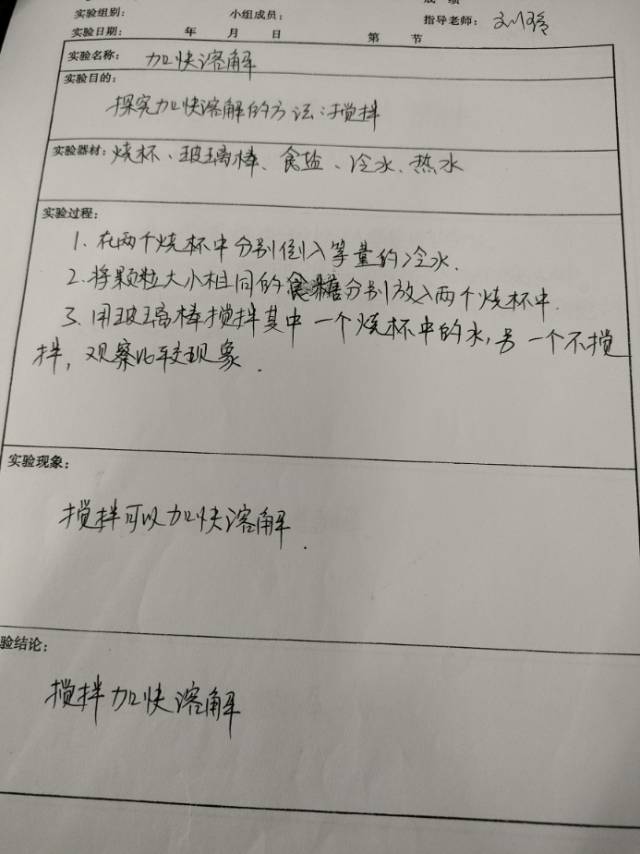 实验组别： 小组成员： 指导老师：刘玲
实验日期： 年 月 日 第 节
实验名称： 加快溶解
实验目的：
探究加快溶解的方法：搅拌
实验器材：烧杯、玻璃棒、食盐、冷水、热水
实验过程：
1. 在两个烧杯中分别倒入等量的冷水.
2. 将颗粒大小相同的食糖分别放入两个烧杯中.
3. 用玻璃棒搅拌其中一个烧杯中的水，另一个不搅
拌，观察比较现象.
实验现象：
搅拌可以加快溶解.
验结论：
搅拌加快溶解